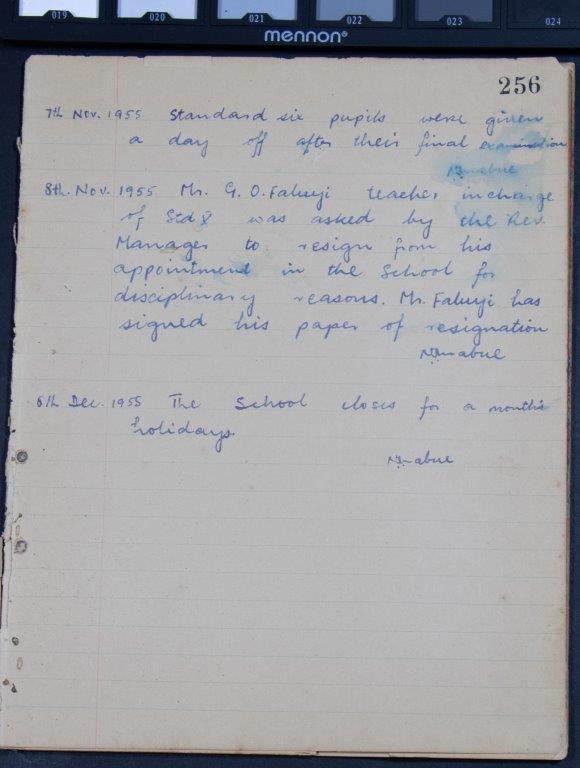 019 020 021 022 023 024
mennon®
256
7th Nov. 1955 Standard six pupils were given
a day off after their final examination
8th. Nov. 1955 Mr. G. O. Faluyi teacher in charge
of Std V was asked by the Rev.
Manager to resign from his
appointment in the School for
disciplinary reasons. Mr. Faluyi has
signed his paper of resignation
6th Dec. 1955 The School closes for a month's
holidays.